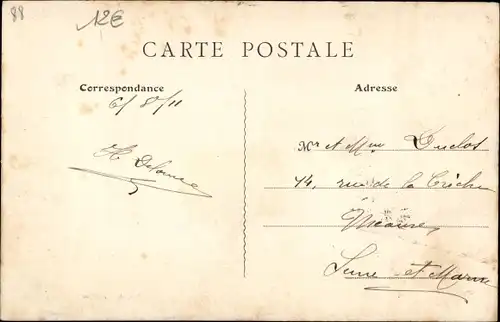 88
12€
CARTE POSTALE
Correspondance
6/ 8/11
Adresse
Mr et Mme Duclos
14, rue de la Crèche
Meaux,
Seine et Marne